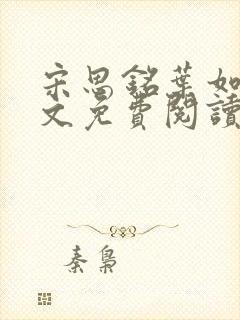 宋思銘葉如
文免費閱讀
秦梟